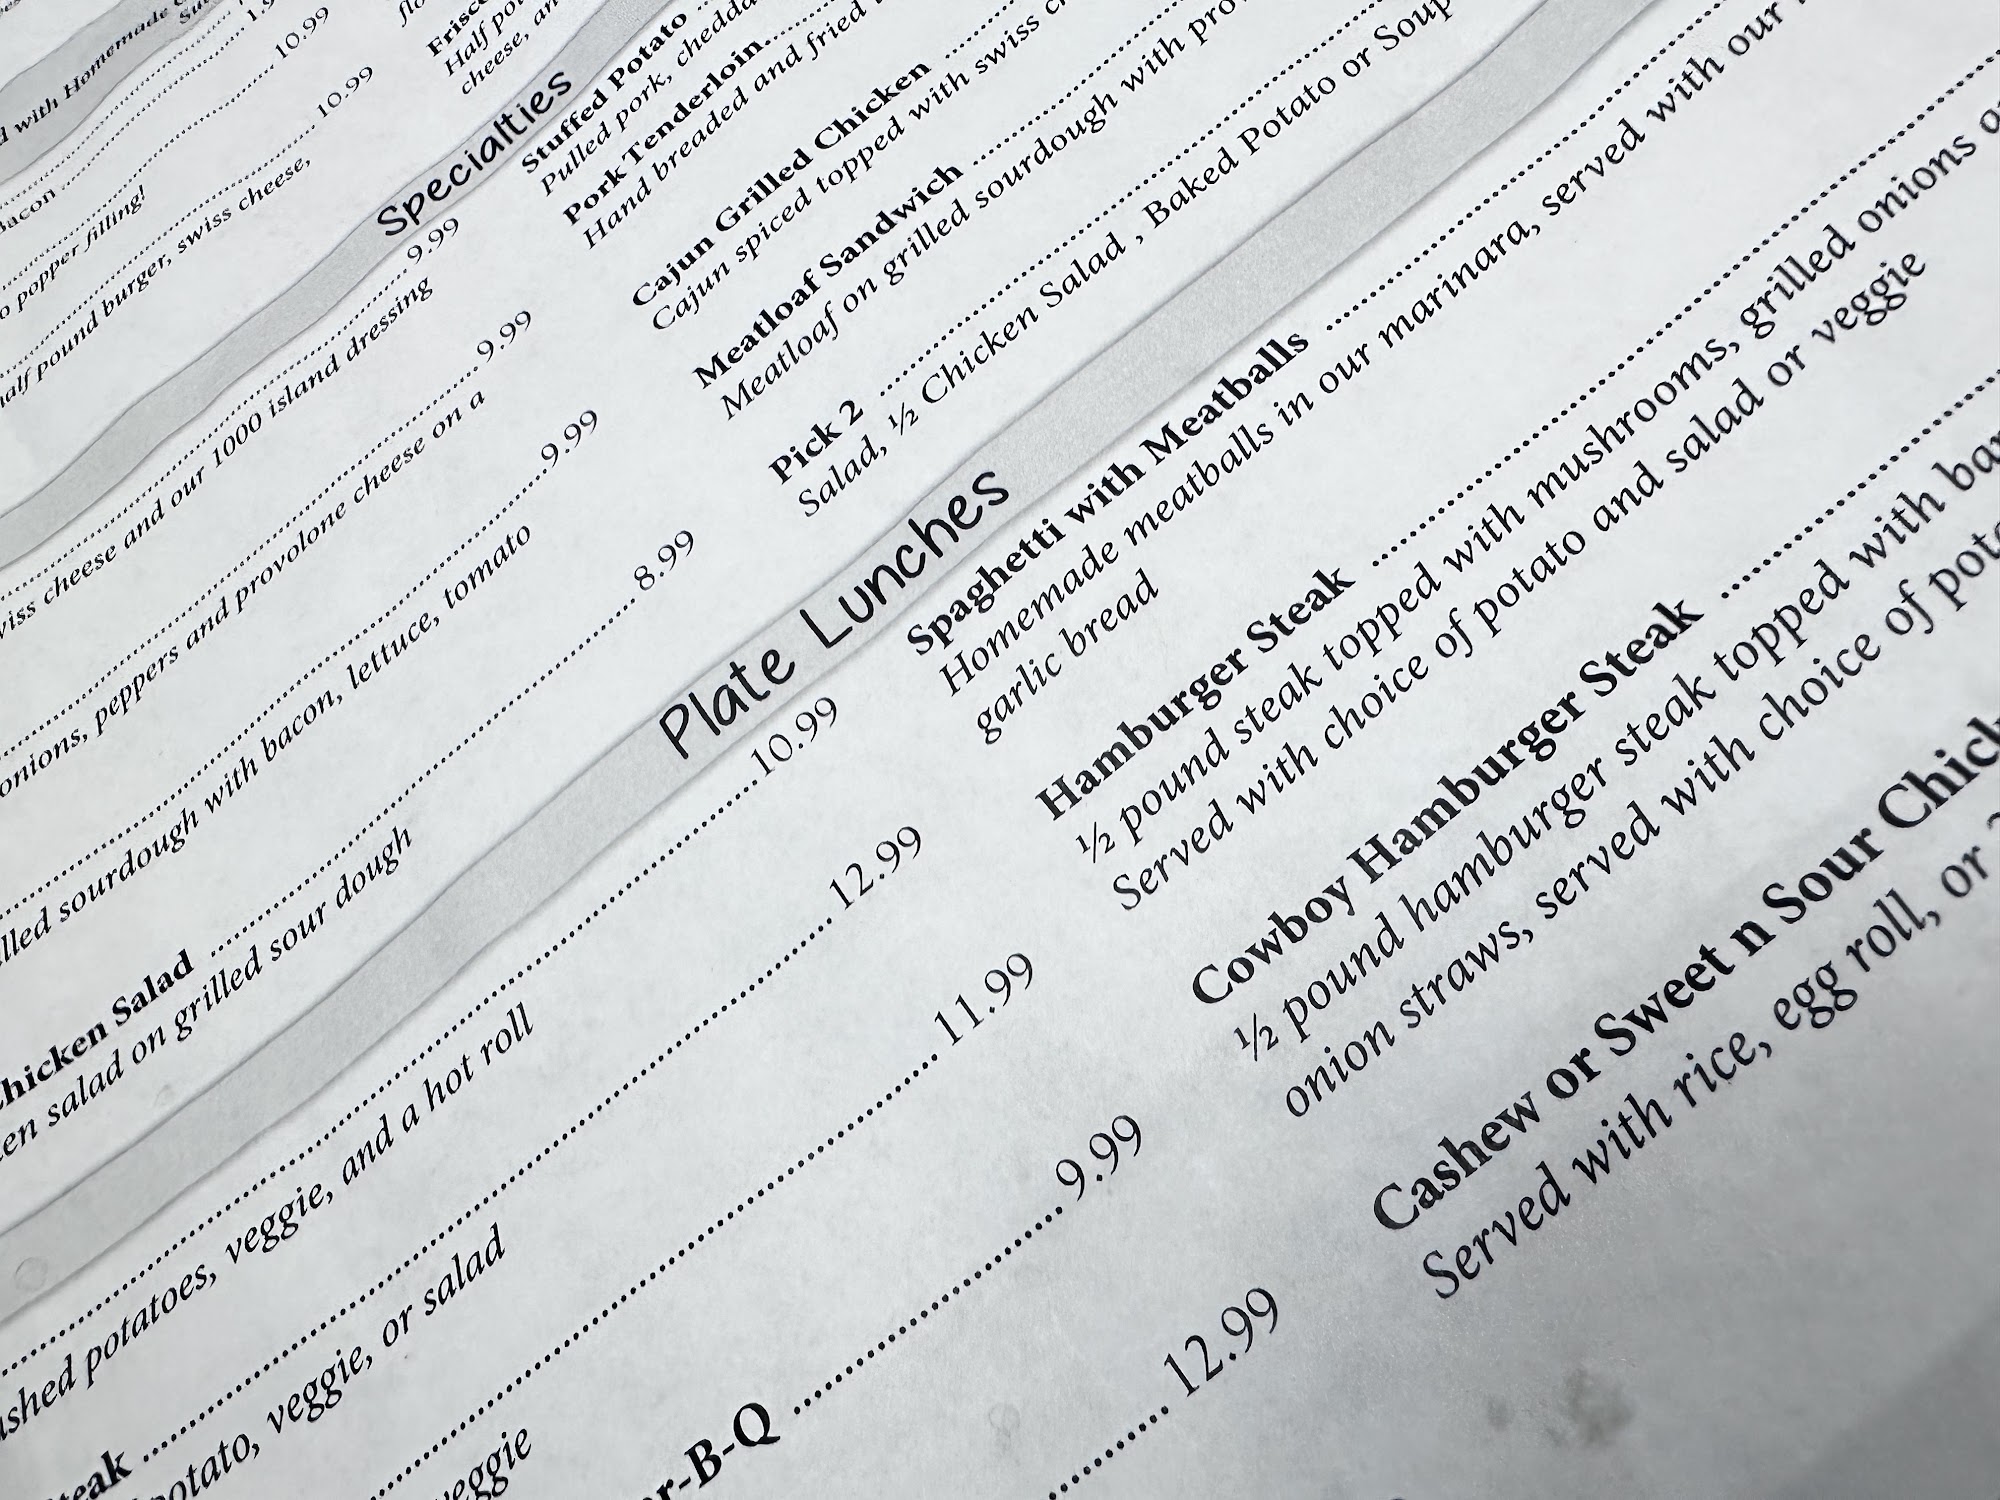 with Homemade
1.9
10.99
Bacon
popper filling!
10.99
half pound burger, swiss cheese,
Half
cheese,
Specialties
9.99
swiss cheese and our 1000 island dressing
9.99
onions, peppers and provolone cheese on a
9.99
sourdough with bacon, lettuce, tomato
8.99
Chicken Salad
salad on grilled sour dough
Stuffed Potato
Pulled pork,
Pork Tenderloin
Hand breaded and fried
Cajun Grilled Chicken
Cajun spiced topped with swiss
Meatloaf Sandwich
Meatloaf on grilled sourdough with
Pick 2
Salad, ½ Chicken Salad , Baked Potato or Soup
Plate Lunches
10.99
potatoes, veggie, and a hot roll
12.99
potato, veggie, or salad
11.99
veggie
9.99
-B-Q
12.99
Spaghetti with Meatballs
Homemade meatballs in our marinara, served with our
garlic bread
Hamburger Steak
½ pound steak topped with mushrooms, grilled onions
Served with choice of potato and salad or veggie
Cowboy Hamburger Steak
½ pound hamburger steak topped with
onion straws, served with choice of
Cashew or Sweet n Sour
Served with rice, egg roll, or